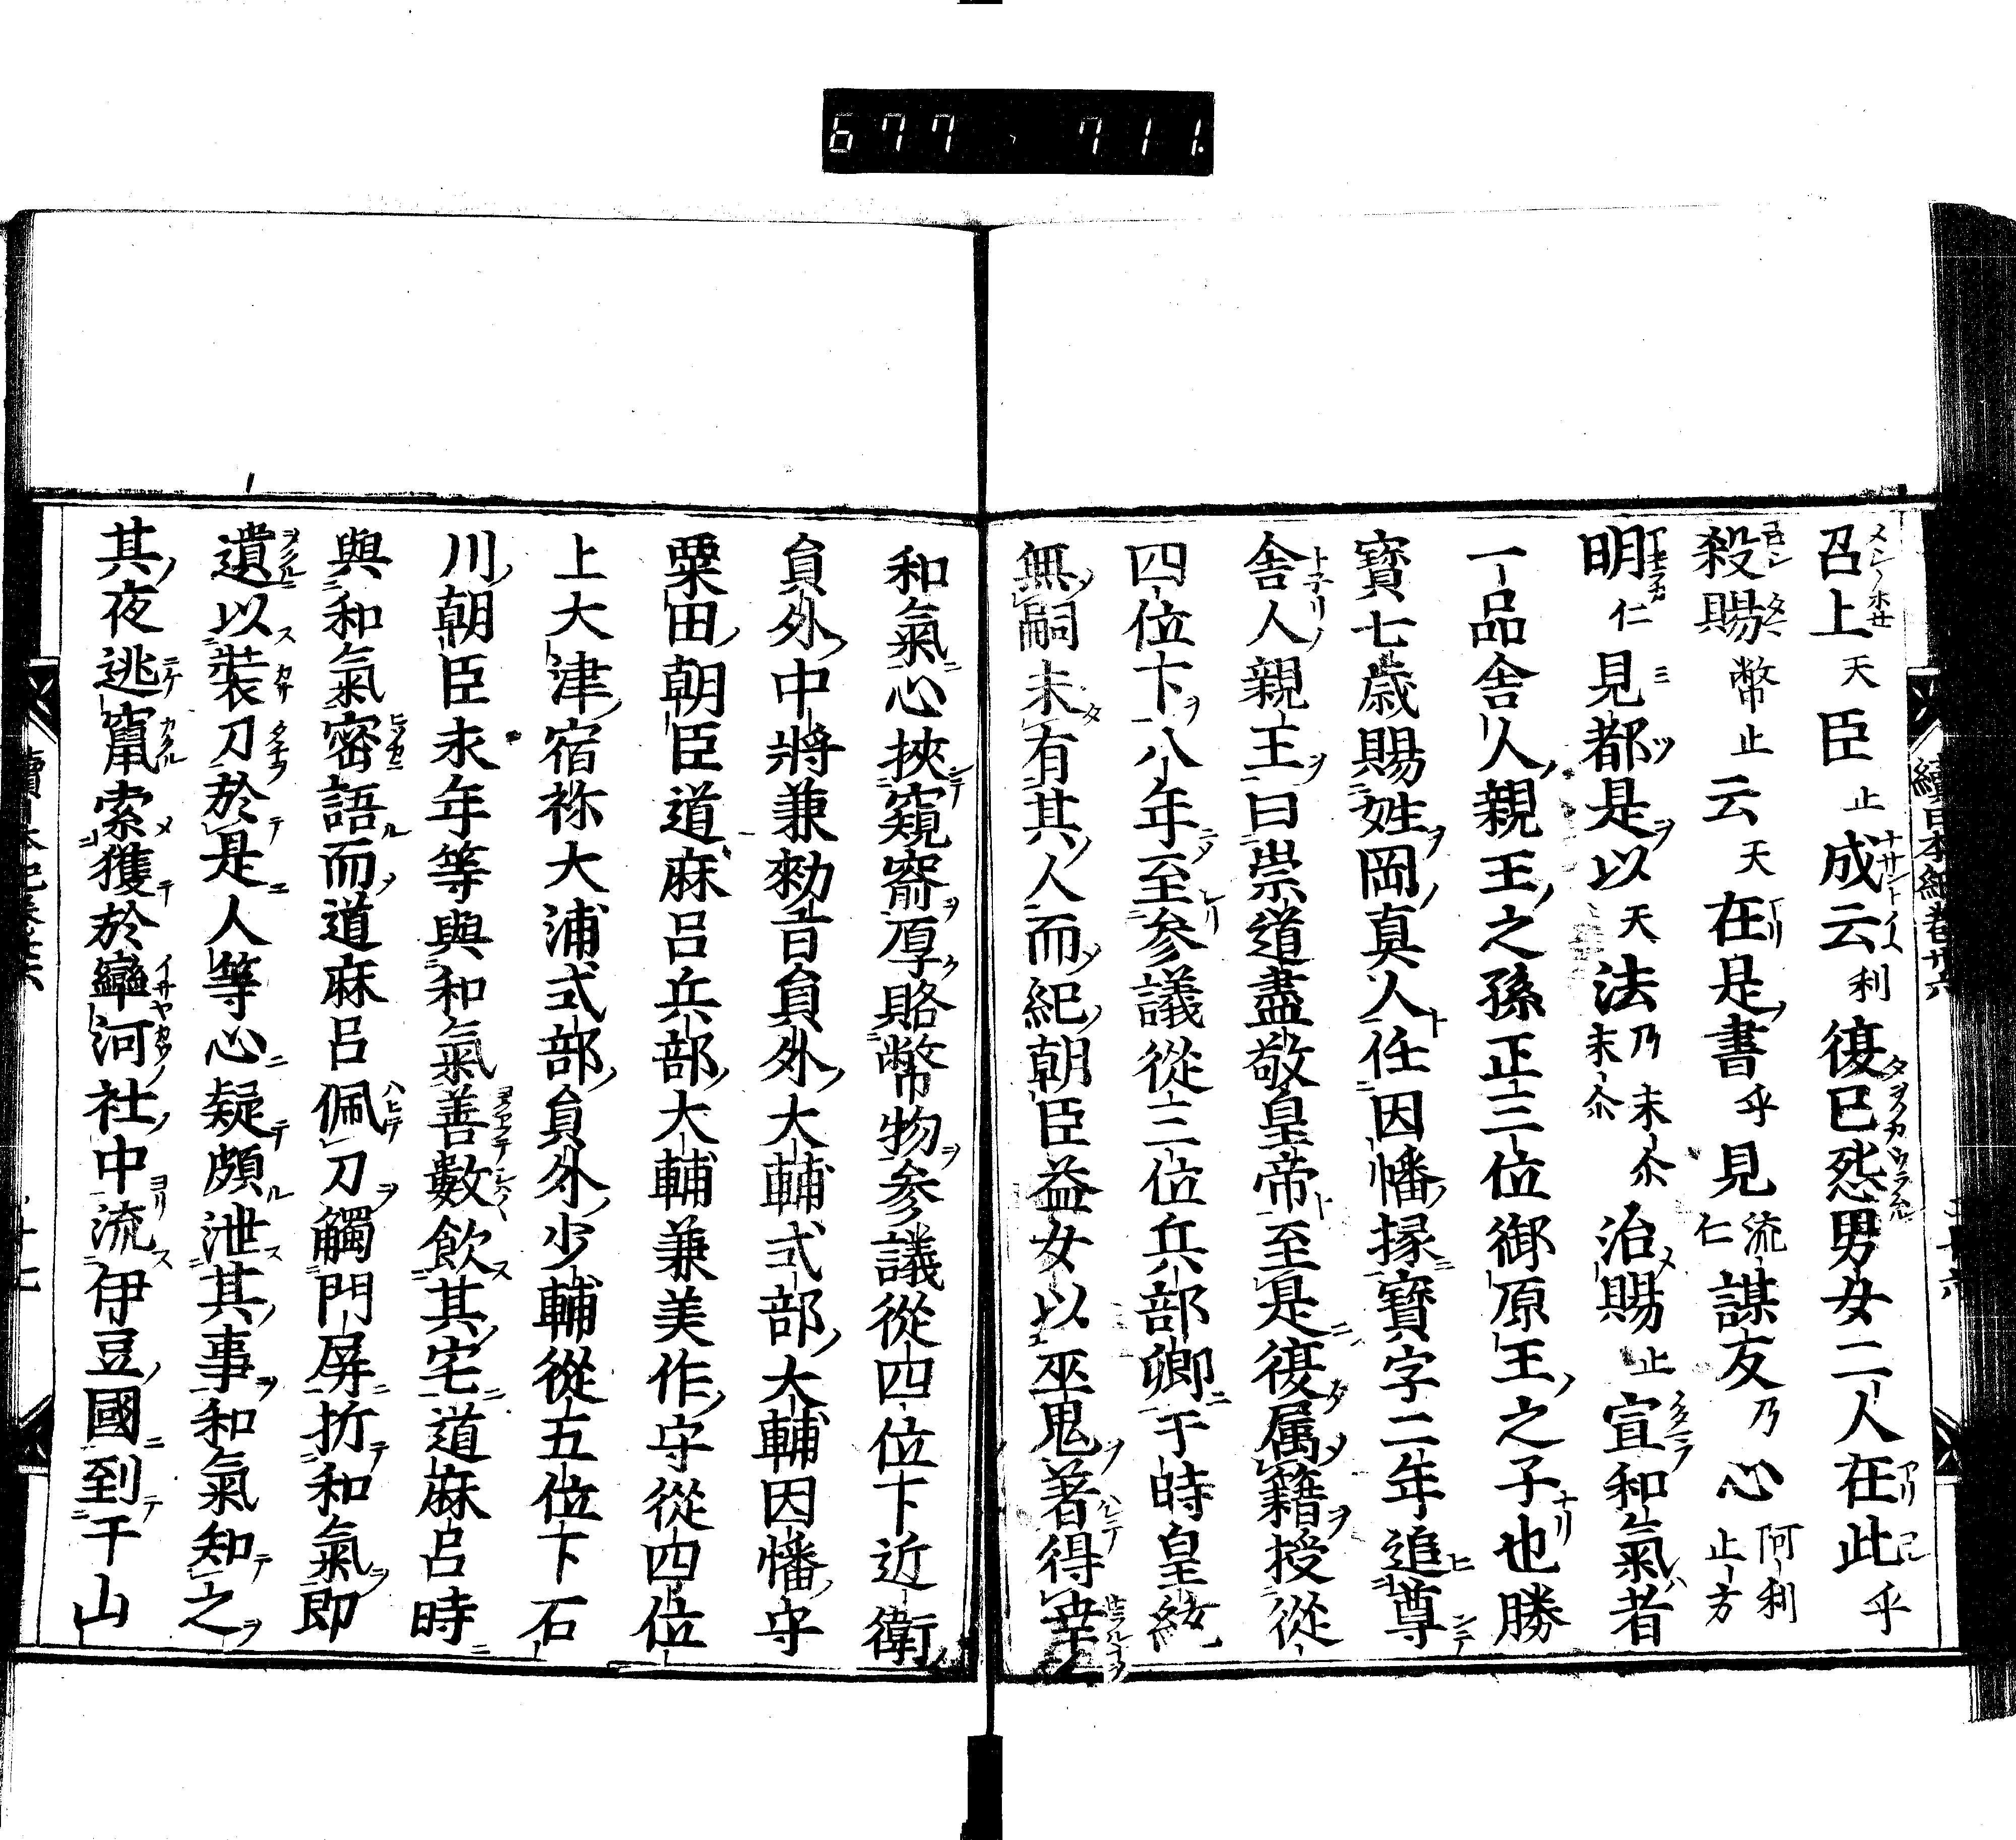 677 711.
召上天臣止成云利復己怨男女二人在此乎
殺賜幣止云天在是書乎見流仁謀友乃心阿利止方
明仁見都是以天法乃末尒末尒治賜止宣和氣者
一品舍人親王之孫正三位御原王之子也勝
寶七歲賜姓岡真人任因幡掾寶字二年追尊
舍人親王曰崇道盡敬皇帝至是復属籍授從
四位下八年至参議從三位兵部卿于時皇統
無嗣未有其人而紀朝臣益女以巫鬼著得幸
和氣心挾窺窬厚賂幣物参議從四位下近衛
員外中將兼勅旨員外大輔式部大輔因幡守
粟田朝臣道麻呂兵部大輔兼美作守從四位
上大津宿祢大浦式部員外少輔從五位下石
川朝臣永年等與和氣善數飲其宅道麻呂時
與和氣密語而道麻呂佩刀觸門屏折和氣即
遺以裝刀於是人等心疑頗泄其事和氣知之
其夜逃竄索獲於率河社中流伊豆國到于山